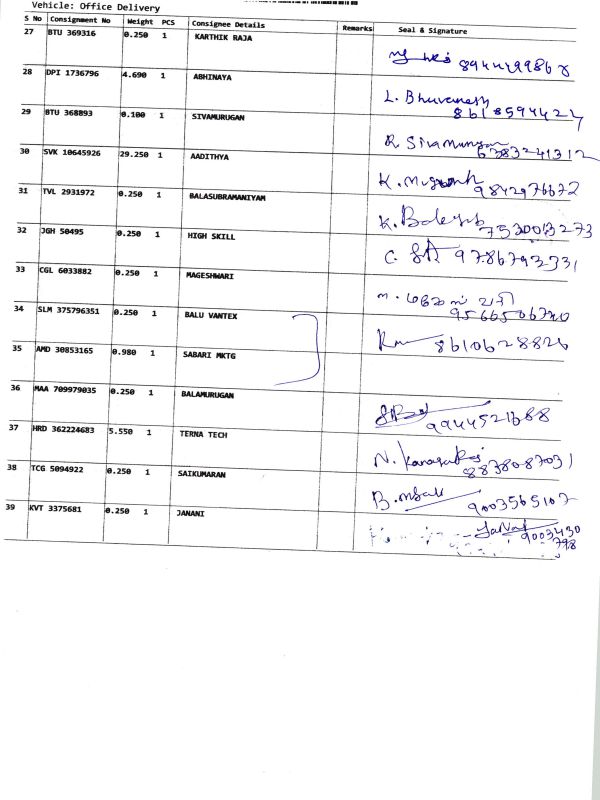 Vehicle: Office Delivery
S No Consignment No Weight PCS Consignee Details Remarks Seal & Signature
27 BTU 369316 0.250 1 KARTHIK RAJA
28 DPI 1736796 4.690 1 ABHINAYA L. Bhuvanesh
8618594424
29 BTU 368893 0.100 1 SIVAMURUGAN R. Sivamurugan
6383241312
30 SVK 10645926 29.250 1 AADITHYA K. 9842976672
31 TVL 2931972 0.250 1 BALASUBRAMANIYAM K. 7530013273
32 JGH 50495 0.250 1 HIGH SKILL C. 9786792331
33 CGL 6033882 0.250 1 MAGESHWARI
34 SLM 375796351 0.250 1 BALU VANTEX 8610628826
35 AMD 30853165 0.980 1 SABARI MKTG
36 MAA 709979035 0.250 1 BALAMURUGAN 9944521688
37 HRD 362224683 5.550 1 TERNA TECH N. Kanagaraj
8838087031
38 TCG 5094922 0.250 1 SAIKUMARAN B. 9003565102
39 KVT 3375681 0.250 1 JANANI Janani
9003430
798